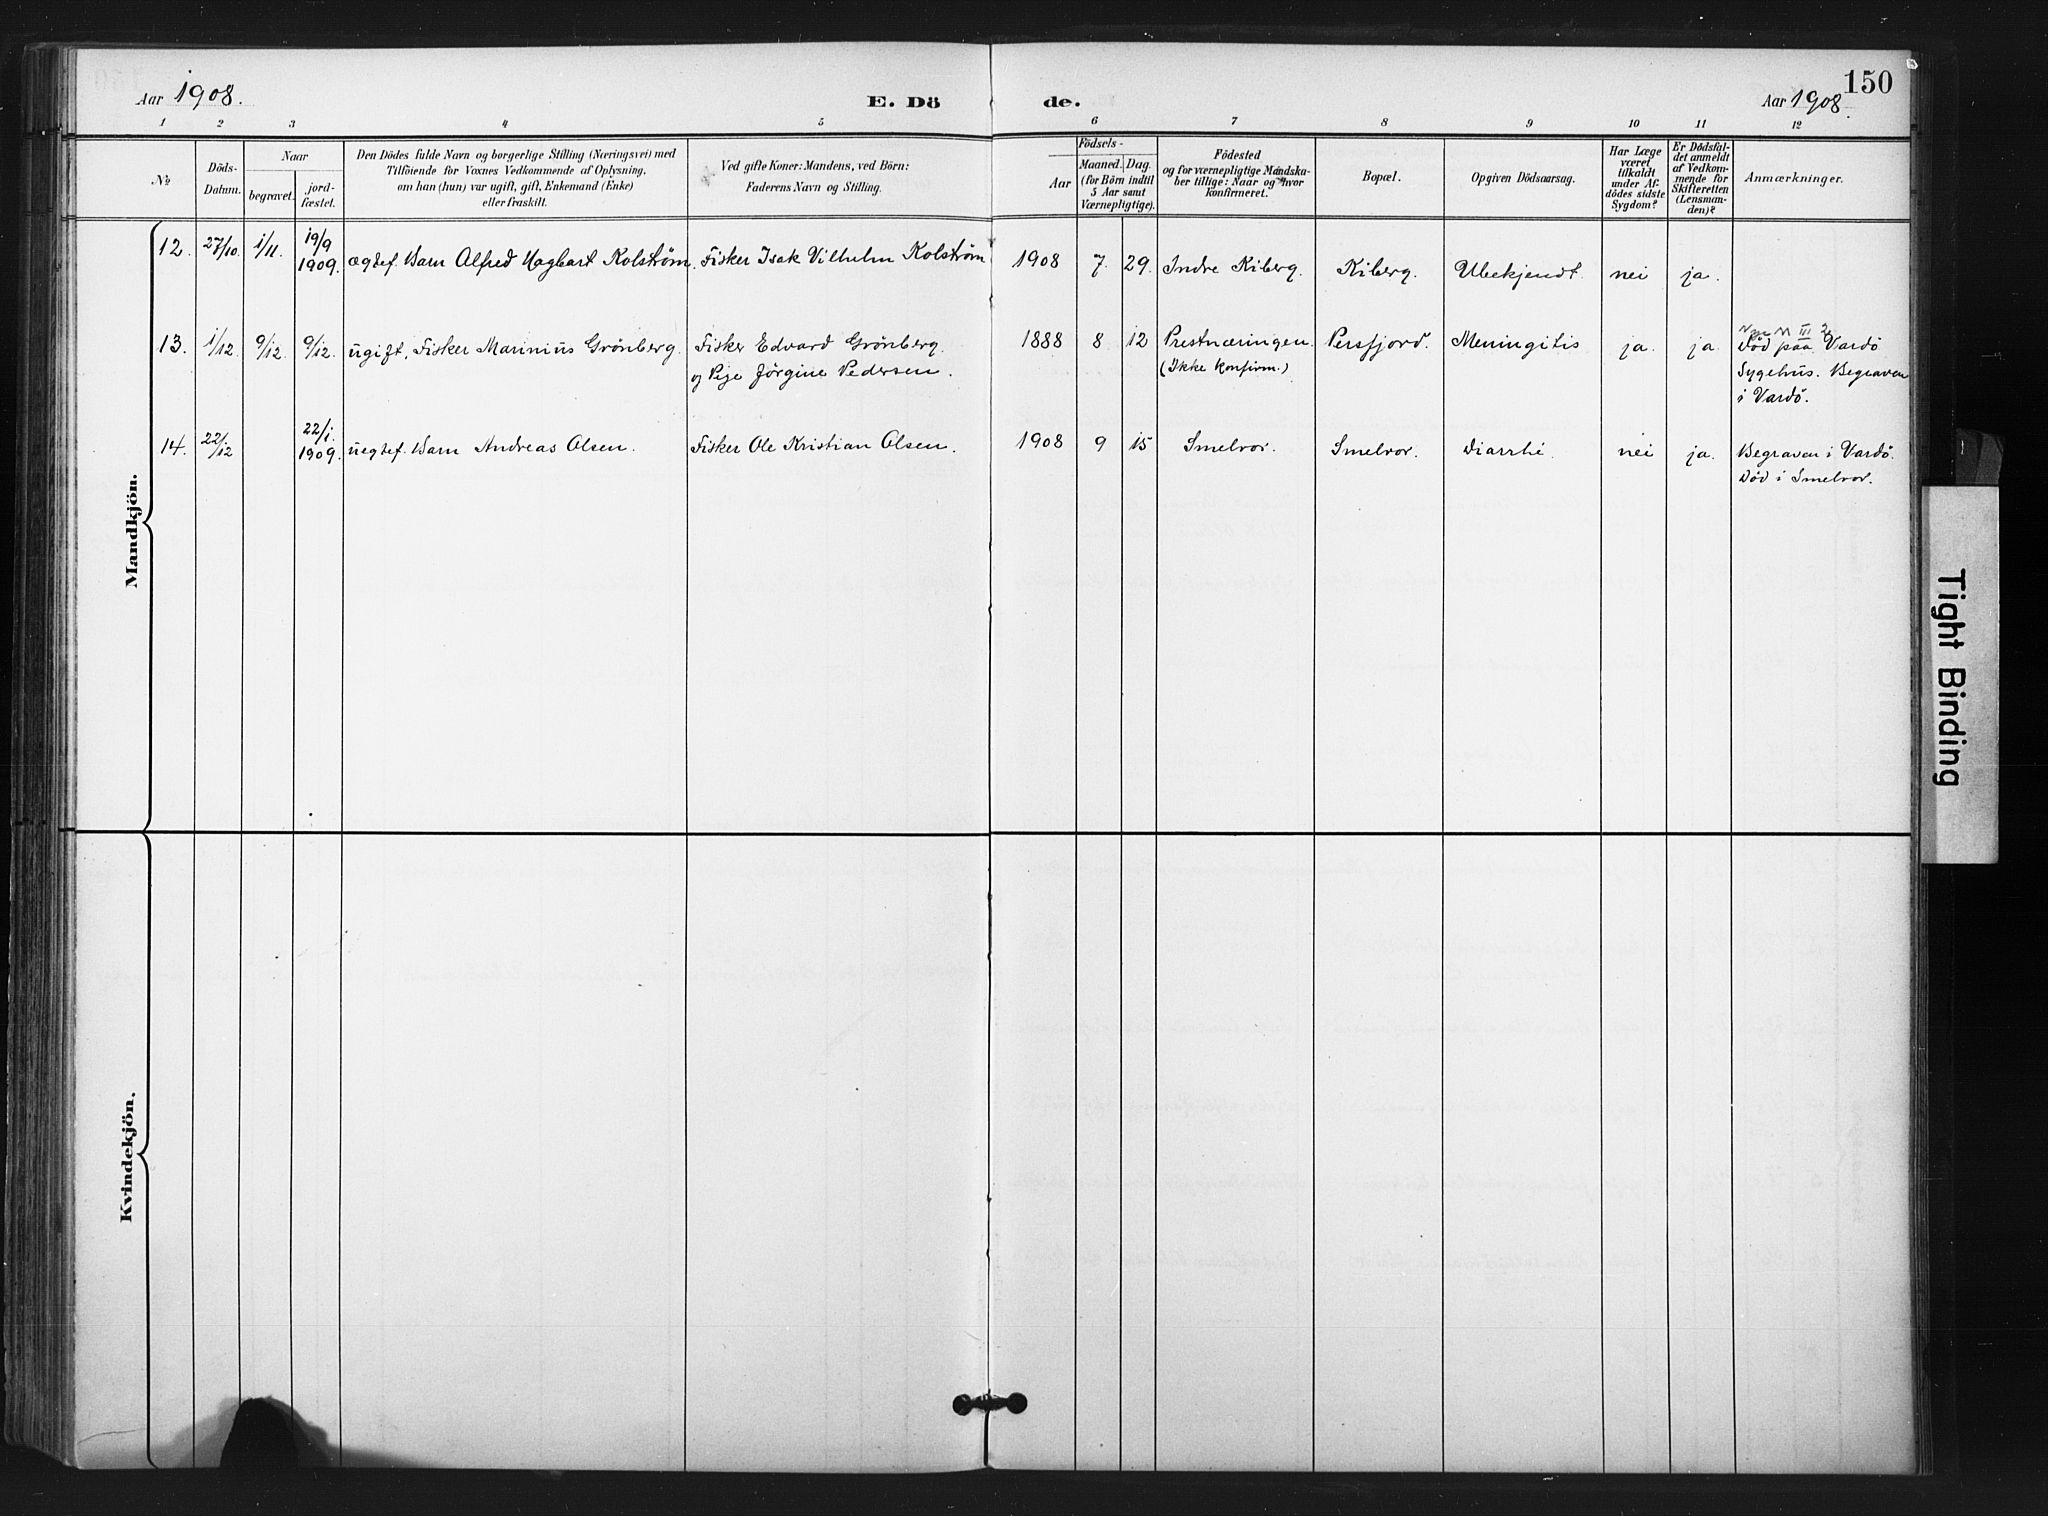 150
Aar 1908.
E. Dö
de.
Aar 1908.
1 2 3 4 5 6 7 8 9 10 11 12
№
Döds-
Datum.
Naar
begravet.
jord-
fæstet.
Den Dödes fulde Navn og borgerlige Stilling (Næringsvei) med
Tilföiende for Voxnes Vedkommende af Oplysning,
om han (hun) var ugift, gift, Enkemand (Enke)
eller fraskilt.
Ved gifte Koner: Mandens, ved Börn:
Faderens Navn og Stilling.
Födsels-
Aar
Maaned. Dag.
(for Börn indtil
5 Aar samt
Værnepligtige).
Födested
og for værnepligtige Mandska-
ber tillige: Naar og hvor
konfirmeret.
Bopæl.
Opgiven Dödsaarsag.
Har Læge
været
tilkaldt
under Af-
dödes sidste
Sygdom?
Er Dödsfal-
det anmeldt
af Vedkom-
mende for
Skifteretten
(Lensman-
den)?
Anmærkninger.
Mandkjön.
12. 27/10. 1/11. 19/9 1909. ægtef. Barn Alfred Hagbart Kolström. Fisker Isak Vilhelm Kolström 1908 7. 29. Indre Kiberg. Kiberg. Ubekjendt. nei ja.
13. 1/12 9/12. 9/12. ugift, Fisker Marinius Grönberg. Fisker Edvard Grönberg. 1888 8 12 Prestnæringen. Persfjord. Meningitis ja. ja Död paa Vardö
og Pige Jörgine Pedersen. (Ikke konfirm.) Sygehus. Begraven
i Vardö.
14. 22/12 22/1. 1909. uegtef. Barn Andreas Olsen. Fisker Ole Kristian Olsen. 1908 9 15 Smelror. Smelror. Diarrhé. nei ja. Begraven i Vardö.
Död i Smelror.
Kvindekjön.
Tight Binding